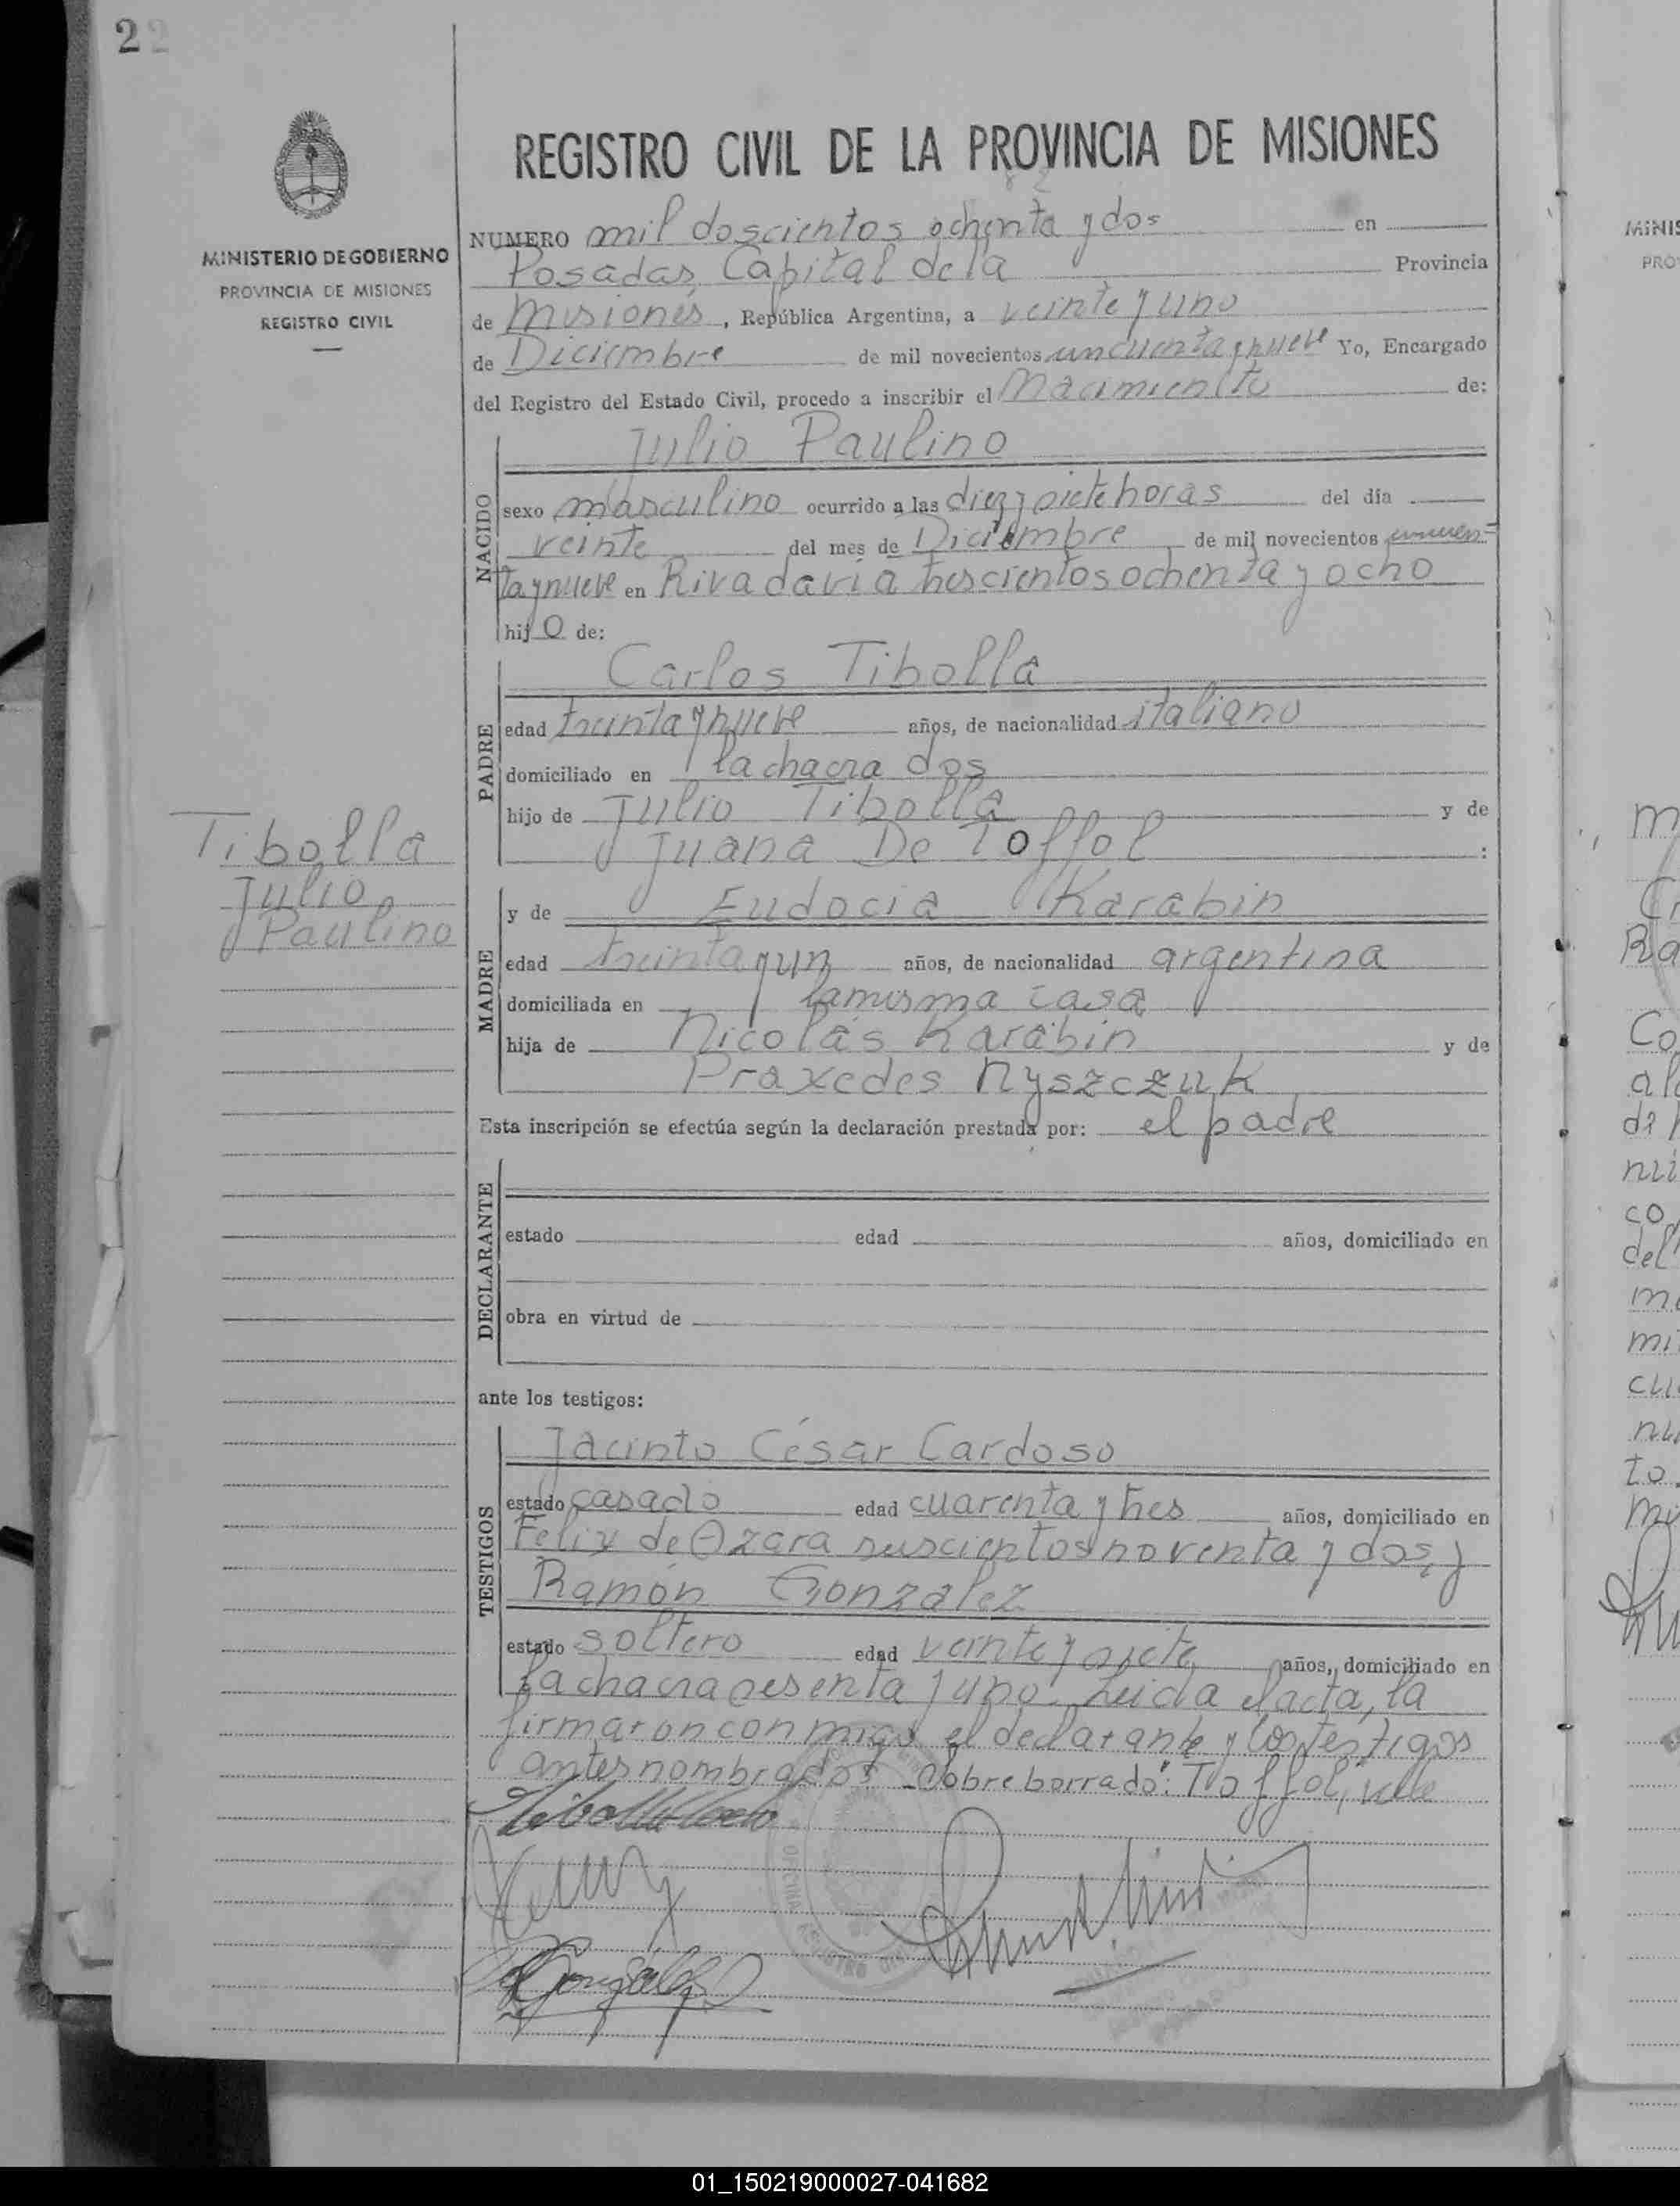 22
MINISTERIO DE GOBIERNO
PROVINCIA DE MISIONES
REGISTRO CIVIL
REGISTRO CIVIL DE LA PROVINCIA DE MISIONES
NUMERO mil doscientos ochenta y dos en
Posadas, Capital de la Provincia
de Misiones, República Argentina, a veinte y uno
de Diciembre de mil novecientos cincuenta y nueve Yo, Encargado
del Registro del Estado Civil, procedo a inscribir el Nacimiento de:
NACIDO
Julio Paulino
sexo masculino ocurrido a las diez y siete horas del día
veinte del mes de Diciembre de mil novecientos cincuen-
ta y nueve en Rivadavia trescientos ochenta y ocho
hijo de:
PADRE
Carlos Tibolla
edad treinta y nueve años, de nacionalidad italiano
domiciliado en la chacra dos
hijo de Julio Tibolla y de
Juana De Toffol :
Tibolla
Julio
Paulino
MADRE
y de Eudocia Karabin
edad treinta y un años, de nacionalidad argentina
domiciliada en la misma casa
hija de Nicolás Karabin y de
Praxedes Nyszczuk
Esta inscripción se efectúa según la declaración prestada por: el padre
DECLARANTE
estado edad años, domiciliado en
obra en virtud de
ante los testigos:
TESTIGOS
Jacinto César Cardoso
estado casado edad cuarenta y tres años, domiciliado en
Felix de Azara seiscientos noventa y dos, y
Ramón Gonzalez
estado soltero edad veinte y siete años, domiciliado en
la chacra sesenta y uno. Leida el acta, la
firmaron conmigo el declarante y los testigos
antes nombrados. Sobre borrado: Toffol, vale
Tibolla Carlo
González
OFICINA REGISTRO CIVIL
MINIS
PRO
01_150219000027-041682